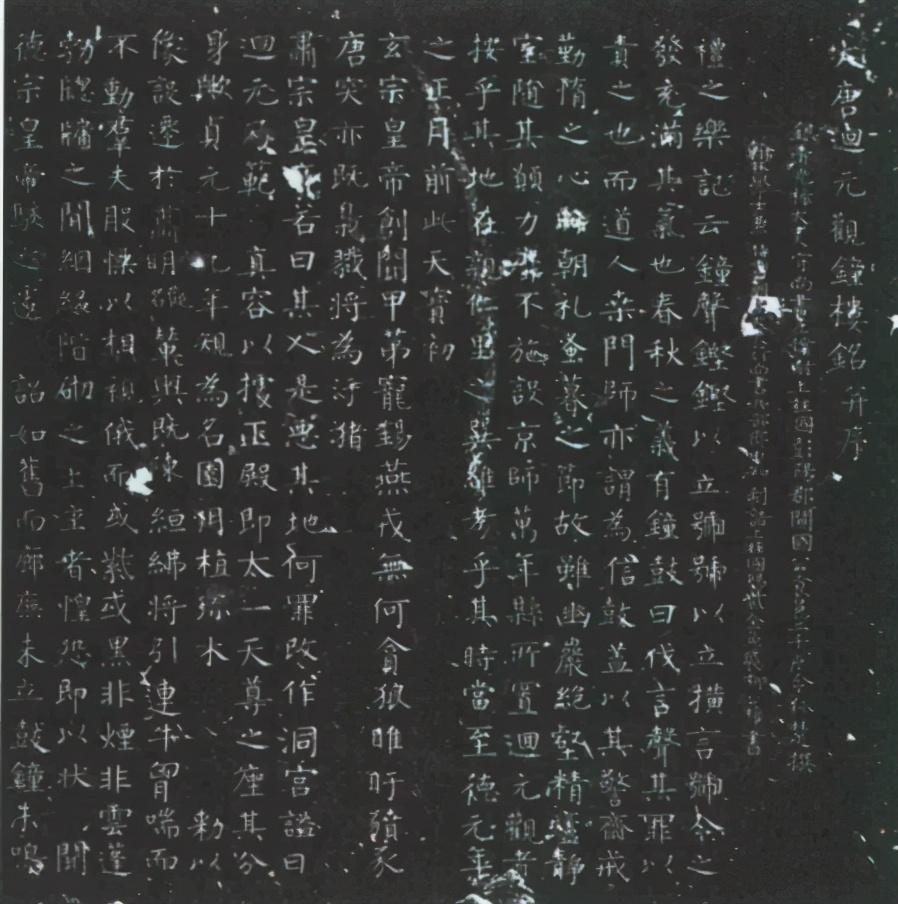 大唐迴元觀鐘樓銘并序
銀青光祿大夫守尚書左僕射上柱國彭陽郡開國公食邑二千户令狐楚撰
翰林學士兼 尚書兵部郎中知制誥上柱國賜紫金魚袋柳 書
禮之樂記云鐘聲鏗鏗以立號號以立橫言號令之
發充滿其氣也春秋之義有鐘鼓曰伐言聲其罪以
責之也而道人桑門師亦謂為信鼓盖以其警齋戒
勤惰之心時朝礼蚤暮之節故雖幽巖絕壑精廬静
室隨其願力靡不施設京師萬年縣所置迴元觀者
按乎其地在親仁里之巽維考乎其時當至德元年
之正月前此天寶初
玄宗皇帝創開甲第寵錫燕戎無何貪狼睢盱豶豕
唐突亦既梟戮將為汙豬
肅宗皇帝若曰其人是惡其地何罪改作洞宮謚曰
迴元乃範 真容以據正殿即太一天尊之座其分
身歟貞元十九年規為名園用植珍木 勑以
像設遷於肅明觀 輿既陳絙紼將引連牛胷喘而
不動羣夫股慄以相顧俄而或紫或黑非煙非雲蓬
勃牎牖之間絪縕階砌之上主者惶恐即以狀 聞
德宗皇帝駭之遽 詔如舊而廊廡未立鼓鐘未鳴